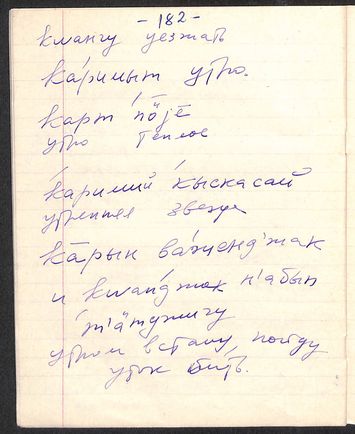 - 182 -
квангу уезжать
ка́римыт утро.
карт пӧjе̄
утро теплое
ка́римий кыскасай
утренняя звезда
ка̄рын ва́женд'жак
и квай́джак н'абын
т'а́тджигу
утром встану, пойду
уток бить.